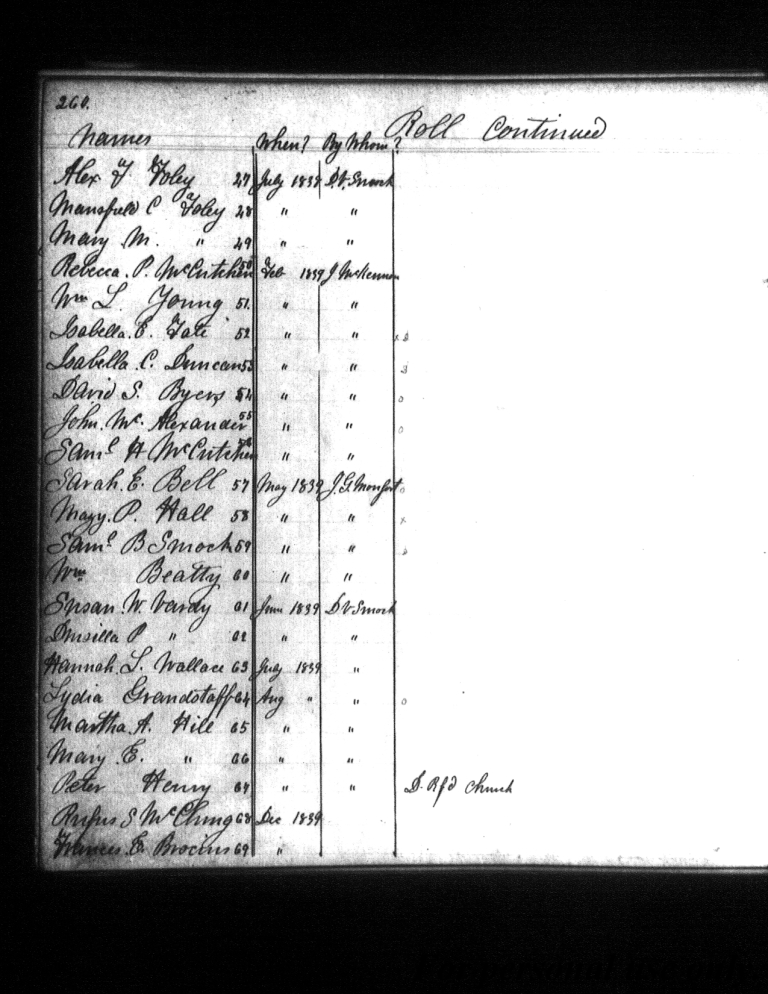 260.
Roll Continued
Names When? By Whom?
Alex F Foley 47 July 1839 D.V. Smock
Mansfield C Foley 48 " "
Mary M. " 49 " "
Rebecca. P. McCutchen 50 Feb 1839 J McKennon
Wm L. Young 51. " "
Isabella. E. Tate 52 " "
Isabella. C. Duncan 53 " "
David S. Byers 54 " " o
John. Mc. Alexander 55 " " o
Saml H McCutchen 56 " "
Sarah. E. Bell 57 May 1839 J. G. Monfort o
Mary. P. Hall 58 " " x
Saml B Smock 59 " "
Wm Beatty 60 " "
Susan. W. Vardy 61 June 1839 D V Smock
Drusilla P " 62 " "
Hannah. L. Wallace 63 July 1839 "
Lydia Grandstaff 64 Aug " " o
Martha. A. Hill 65 " "
Mary. E. " 66 " "
Peter Henry 67 " " D. Rfd Church
Rufus S McClung 68 Dec 1839
Frances. E. 69 "